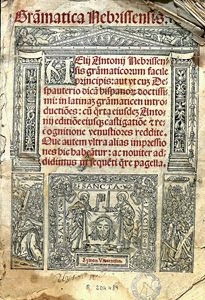 Grãmatica Nebrissensis.
Aelij Antonij Nebrissen
sis grãmaticorum facile
principis: aut vt cuz Des
pauterio dicã hispanor doctissi
mi: in latinaz grãmaticen intro
ductiões: cũ qrta eiusdez Antonij
editiõe eiusqz castigatiõe & re
cognitione venustiores reddite.
Que autem vltra alias impressio
nes hic habeãtur: ac nouiter ad
didimus in sequẽti qre pagella.
SANCTA
R. 204484